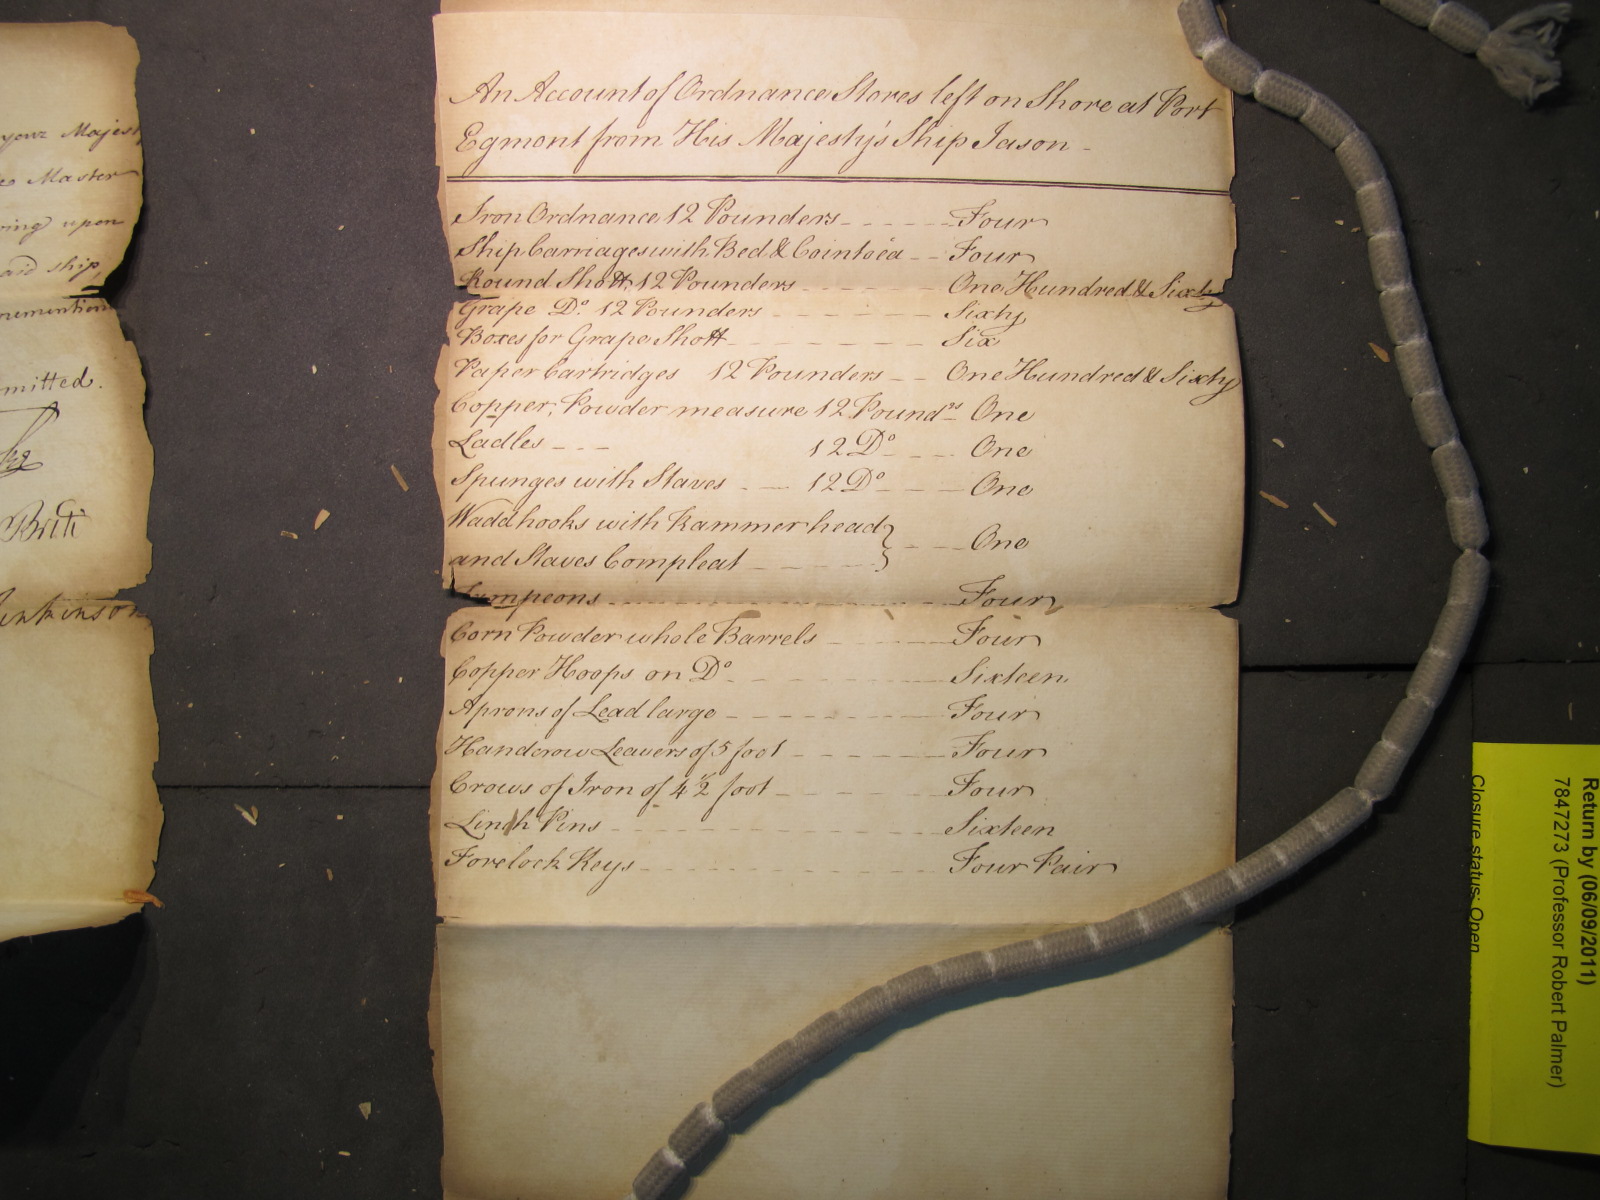 your Majest
Master
ring upon
aid ship,
nemention
mitted.
Briti
enkinson
An Account of Ordnance Stores left on Shore at Port
Egmont from His Majesty's Ship Jason -
Iron Ordnance 12 Pounders - - - - - - Four
Ship Carriages with Bed & Cointo'ea - - Four
Round Shott, 12 Pounders - - - - - - One Hundred & Sixty
Grape Do. 12 Pounders - - - - - - Sixty
Boxes for Grape Shott - - - - - - Six
Paper Cartridges 12 Pounders - - One Hundred & Sixty
Copper, Powder measure 12 Pound.rs One
Ladles - - - 12 Do - - - One
Spunges with Staves - - 12 Do - - - One
Wadd hooks with Rammer head } - - - One
and Staves Compleat - - - - -
Tumpeons - - - - - - Four
Corn Powder whole Barrels - - - - Four
Copper Hoops on Do - - - - - - Sixteen
Aprons of Lead large - - - - - - Four
Handcrow Leavers of 5 foot - - - - - Four
Crows of Iron of 4 1/2 foot - - - - - Four
Linch Pins - - - - - - Sixteen
Forelock Keys - - - - - - Four Pair
Return by (06/09/2011)
7847273 (Professor Robert Palmer)
Closure status: Open